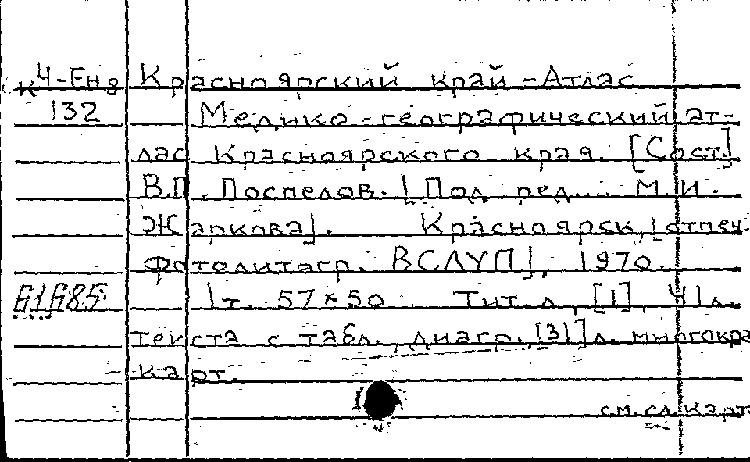 К4-Ен8 Красноярский край - Атлас
132 Медико-географический ат-
лас Красноярского края. [Сост.]
В.П. Поспелов. [Под ред. М.И.
Жаркова]. Красноярск, [отпеч.
Фотолитагр. ВСАУП], 1970.
61685 1т. 57×50 Тит. л., [1], 41л.
текста с табл., диагр., [31]л. многокра
карт.
см. сл. карт